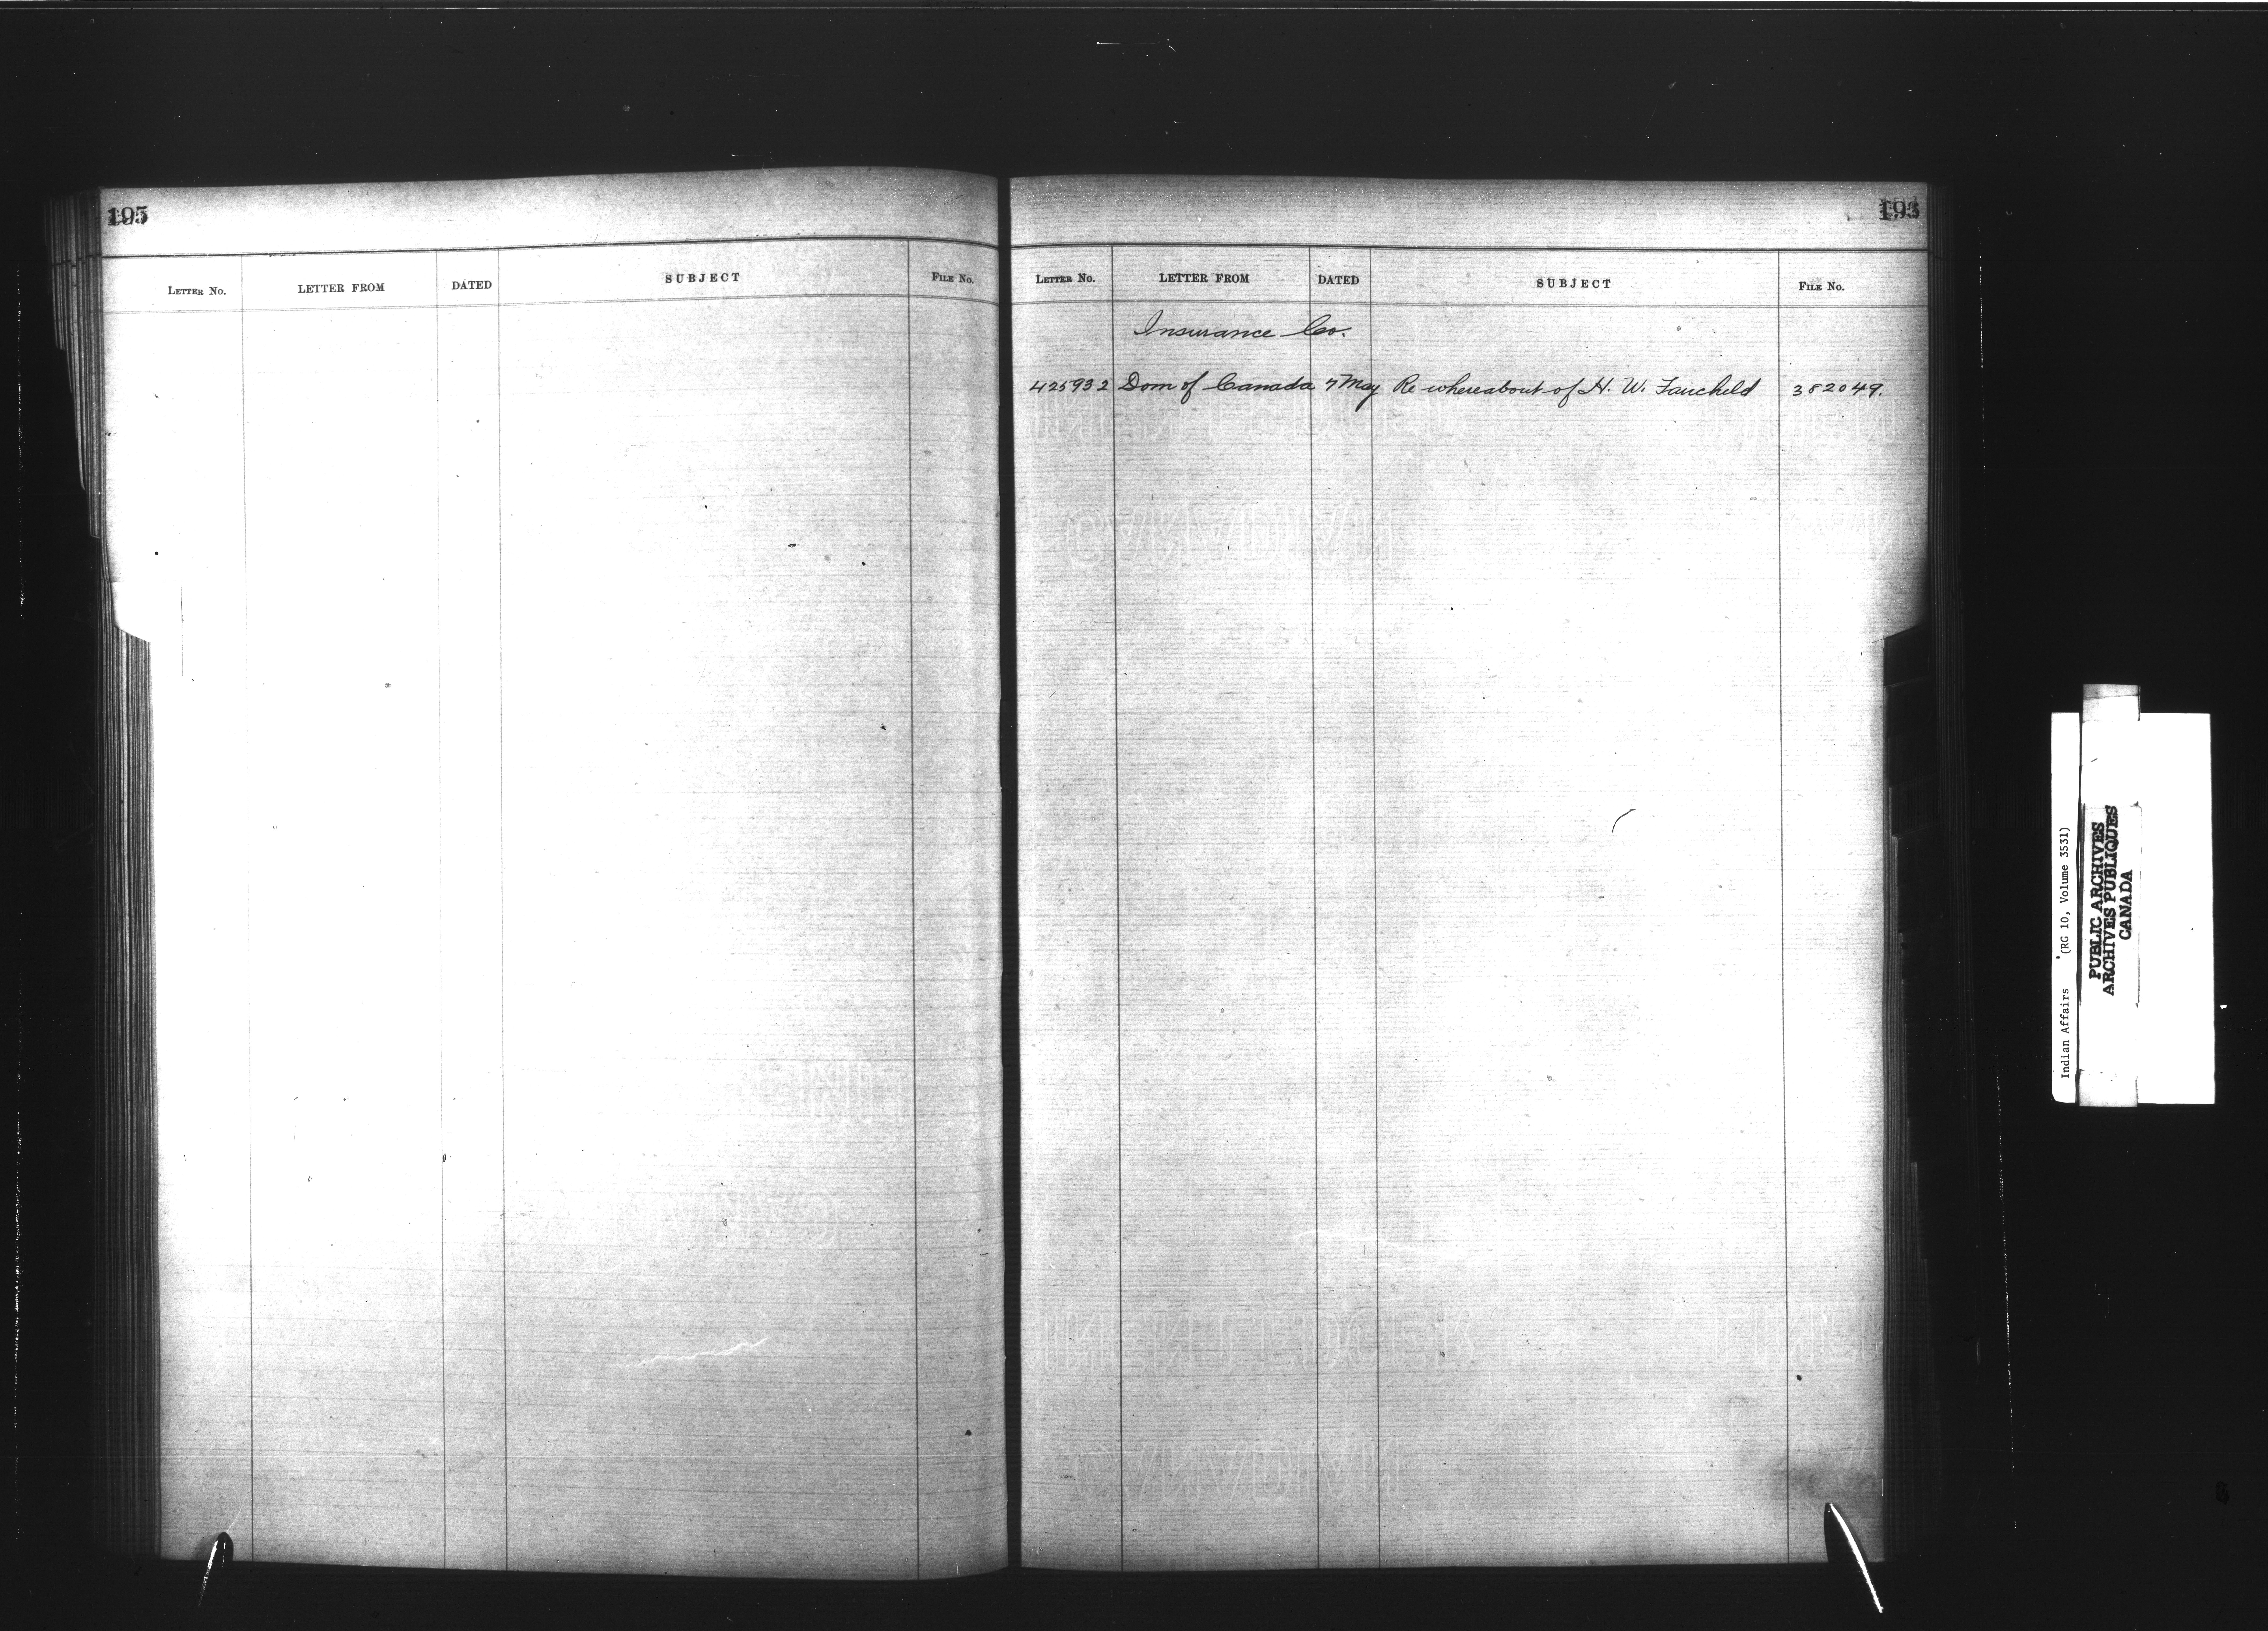 195
LETTER NO. LETTER FROM DATED SUBJECT FILE NO.
193
LETTER NO. LETTER FROM DATED SUBJECT FILE NO.
Insurance Co.
425932 Dom of Canada 7 May Re whereabout of H. W. Faucheld 382049.
LINEN LEDGER
CANADIAN
LINEN LEDGER
CANADIAN
Indian Affairs (RG 10, Volume 3531)
PUBLIC ARCHIVES
ARCHIVES PUBLIQUES
CANADA